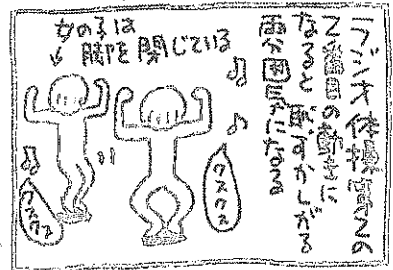 ラジオ体操第2の
2番目の動きに
なると恥ずかしがる
両分団長になる
女の子は
脚を閉じている
クスクス
クスクス